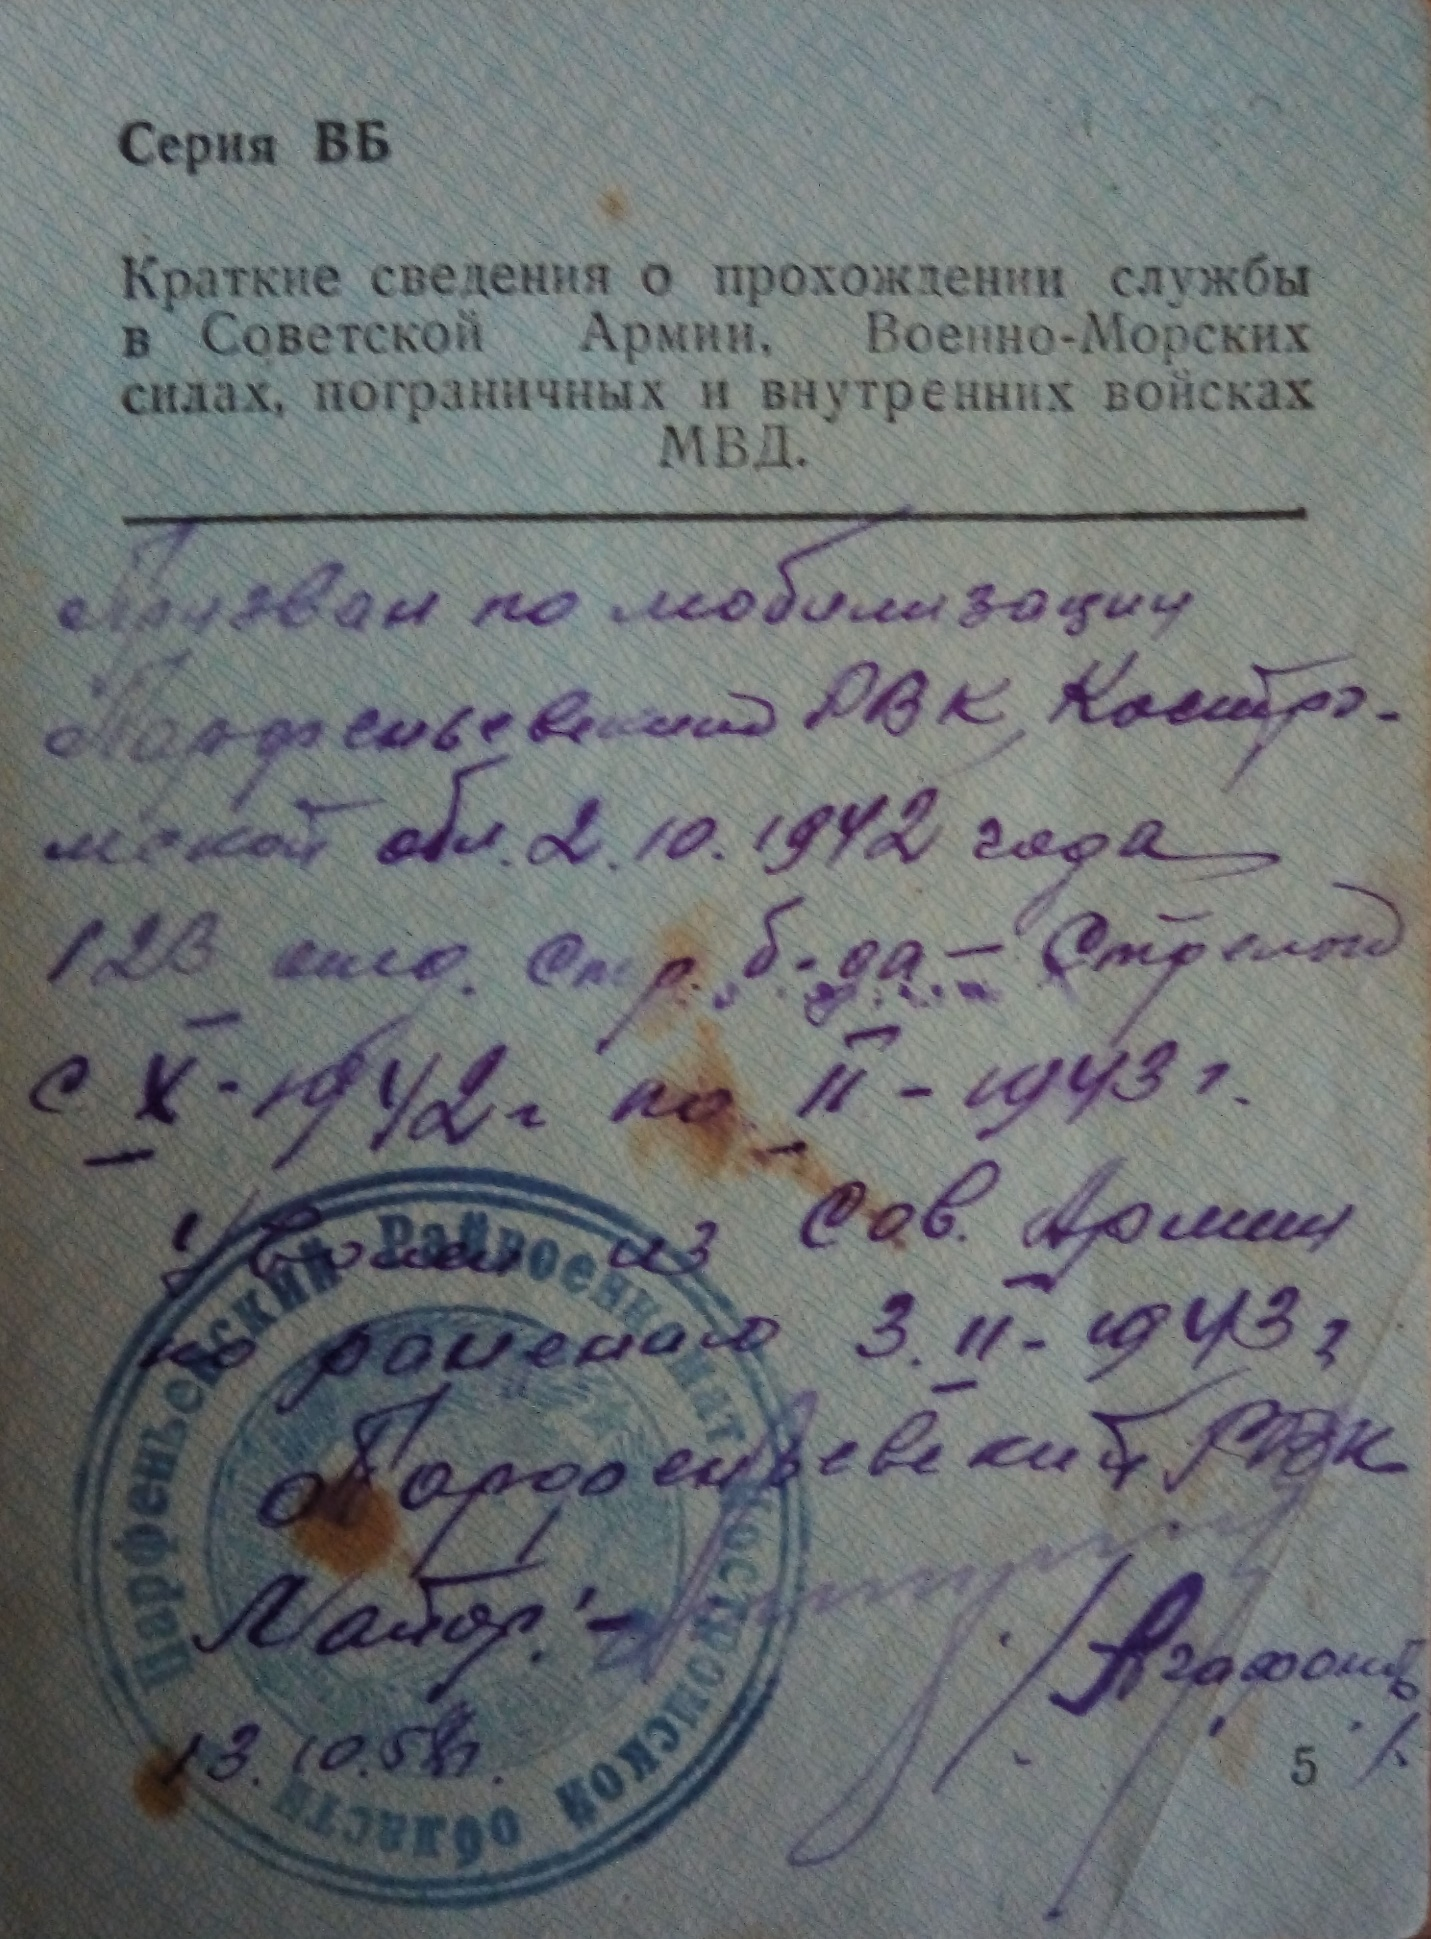 Серия ВБ
Краткие сведения о прохождении службы
в Советской Армии, Военно-Морских
силах, пограничных и внутренних войсках
МВД.
Призван по мобилизации
Парфеньевским РВК Костро-
мской обл. 2.10.1942 года
123 отд. стр. б-да — Стрелок
с X-1942 г по II-1943 г.
Уволен из Сов. Армии
по ранению 3.II-1943 г
Парфеньевский РВК
Майор -
/Агафонов/
13.10.5 г.
Парфеньевский Райвоенкомат Костромской области
5